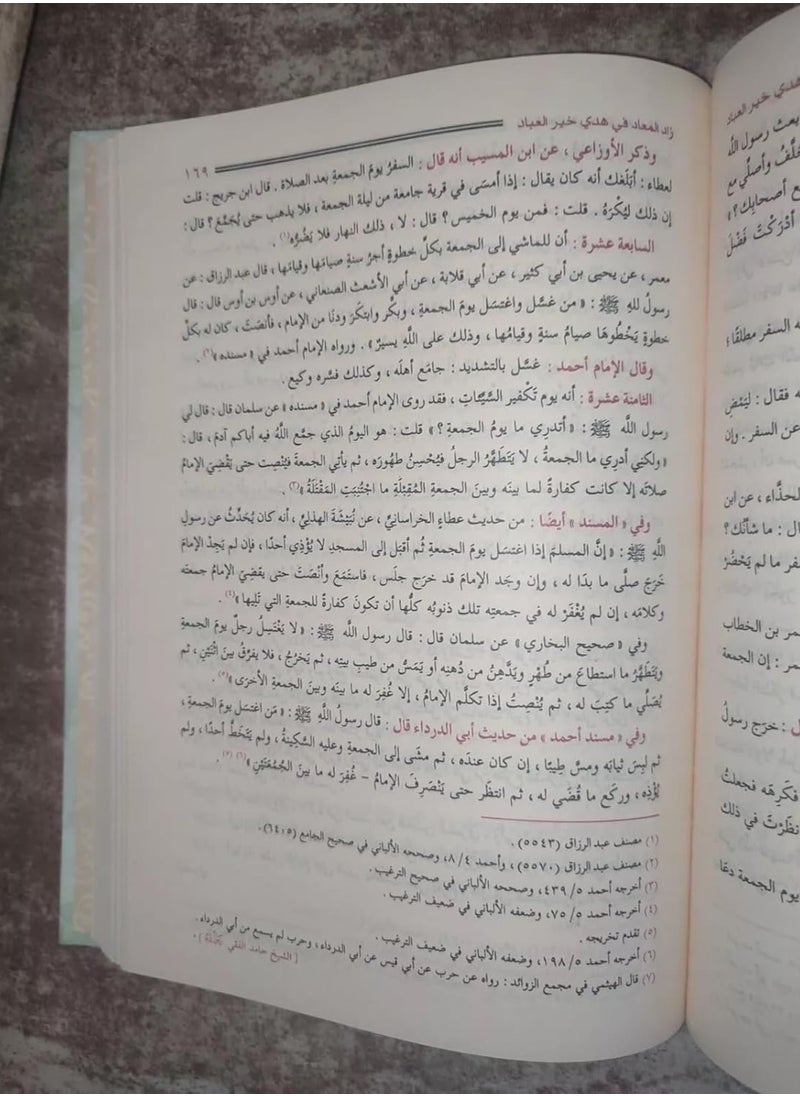 زاد المعاد في هدي خير العباد
١٦٩
وذكر الأوزاعي ، عن ابن المسيب أنه قال : السفرُ يومَ الجمعةِ بعد الصلاة . قال ابن جريج : قلت
لعطاء : أبَلَغك أنه كان يقال : إذا أمسى في قرية جامعة من ليلة الجمعة ، فلا يذهب حتى يُجَمِّعَ ؟ قال :
إن ذلك ليُكْرَهُ . قلت : فمن يوم الخميس؟ قال : لا ، ذلك النهار فلا يَضُرُّه(١) .
السابعة عشرة : أن للماشي إلى الجمعة بكلِّ خطوةٍ أجرُ سنةٍ صيامَها وقيامَها ، قال عبد الرزاق : عن
معمر ، عن يحيى بن أبي كثير ، عن أبي قلابة ، عن أبي الأشعث الصنعاني ، عن أوس بن أوس قال : قال
رسولُ للهِ ﷺ : « من غسَّل واغتسَل يومَ الجمعةِ ، وبكَّر وابتكَرَ ودنَا من الإمام ، فأنصَتَ ، كان له بكلِّ
خطوةٍ يَخْطُوهَا صيامُ سنةٍ وقيامُها ، وذلك على اللَّهِ يسيرٌ » . ورواه الإمام أحمد في « مسنده »(٢) .
وقال الإمام أحمد : غسَّل بالتشديد : جامَع أهلَه ، وكذلك فسَّره وكيع .
الثامنة عشرة : أنه يوم تَكْفير السَّيِّئاتِ ، فقد روى الإمام أحمد في « مسنده » عن سلمان قال : قال لي
رسول اللَّه ﷺ : « أتدرِي ما يومُ الجمعةِ ؟ » قلت : هو اليومُ الذي جمَّع اللَّهُ فيه أباكم آدمَ ، قال :
«ولكني أدرِي ما الجمعةُ ، لا يَتَطَهَّرُ الرجلُ فيُحْسِنُ طهُورَه ، ثم يأتِي الجمعةَ فيُنْصِت حتى يَقْضِيَ الإمامُ
صلاتَه إلا كانت كفارةً لما بينَه وبينَ الجمعةِ المُقْبِلَةِ ما اجتُنِبَتِ المَقْتَلَةُ»(٣) .
وفي « المسند » أيضًا : من حديث عطاءٍ الخراسانيِّ ، عن نُبَيْشَةَ الهذليِّ ، أنه كان يُحَدِّثُ عن رسولِ
اللَّهِ ﷺ : « إنَّ المسلمَ إذا اغتسَل يومَ الجمعةِ ثُم أقبَل إلى المسجدِ لا يُؤْذِي أحدًا ، فإن لم يَجِدِ الإمامَ
خَرَجَ صلَّى ما بدَا له ، وإن وجَد الإمامَ قد خرَج جلَس ، فاستَمَعَ وأنْصَتَ حتى يقضِيَ الإمامُ جمعتَه
وكلامَه ، إن لم يُغْفَرْ له في جمعتِه تلك ذنوبُه كلُّها أن تكونَ كفارةً للجمعةِ التي تَلِيها »(٤) .
وفي « صحيح البخاري » عن سلمان قال : قال رسول اللَّه ﷺ : « لا يَغْتَسِلُ رجلٌ يومَ الجمعةِ
ويَتَطَهَّرُ ما استطاعَ من طُهْرٍ ويَدَّهِنُ من دُهنِه أو يَمَسُّ من طيبِ بيتِه ، ثم يَخرُجُ ، فلا يفرِّقُ بينَ اثْنَيْنِ ، ثم
يُصَلِّي ما كتِبَ له ، ثم يُنْصِتُ إذا تكلَّم الإمامُ ، إلا غُفِرَ له ما بينَه وبينَ الجمعةِ الأخرَى »(٥) .
وفي « مسند أحمد » من حديث أبي الدرداء قال : قال رسولُ اللَّهِ ﷺ : « مَن اغتسَل يومَ الجمعةِ ،
ثم لبِسَ ثيابَه ومسَّ طِيبًا ، إن كان عندَه ، ثم مشَى إلى الجمعةِ وعليه السَّكِينةُ ، ولم يَتَخَطَّ أحدًا ، ولم
يُؤْذِه ، وركَع ما قُضِيَ له ، ثم انتظَر حتى يَنْصَرِفَ الإمامُ – غُفِرَ له ما بينَ الجُمُعَتَيْنِ »(٦) (٧) .
(١) مصنف عبد الرزاق (٥٥٤٣) .
(٢) مصنف عبد الرزاق (٥٥٧٠) ، وأحمد ٤/ ٨، وصححه الألباني في صحيح الجامع (٦٤٠٥) .
(٣) أخرجه أحمد ٥/ ٤٣٩، وصححه الألباني في صحيح الترغيب .
(٤) أخرجه أحمد ٥/ ٧٥، وضعفه الألباني في ضعيف الترغيب .
(٥) تقدم تخريجه .
(٦) أخرجه أحمد ٥/ ١٩٨، وضعفه الألباني في ضعيف الترغيب .
(٧) قال الهيثمي في مجمع الزوائد : رواه عن حرب عن أبي قيس عن أبي الدرداء ، وحرب لم يسمع من أبي الدرداء .
[ الشيخ حامد الفقي ] .
هدي خير العباد
بعث رسول اللَّه
أتخلَّفُ وأصلِّي مع
ع أصحابِك؟ »
أدْرَكْتَ فَضْلَ
ه السفر مطلقًا ؛
ه فقال : ليَمْضِ
عن السفر . وإن
الحذَّاء ، عن ابن
ل : ما شأنُك؟
فر ما لم يَحْضُرْ
مر بن الخطاب
مر : إن الجمعة
ل : خرَج رسولُ
فكَرِهَه فجعلتُ
نظَرْتَ في ذلك
يوم الجمعة دعَا